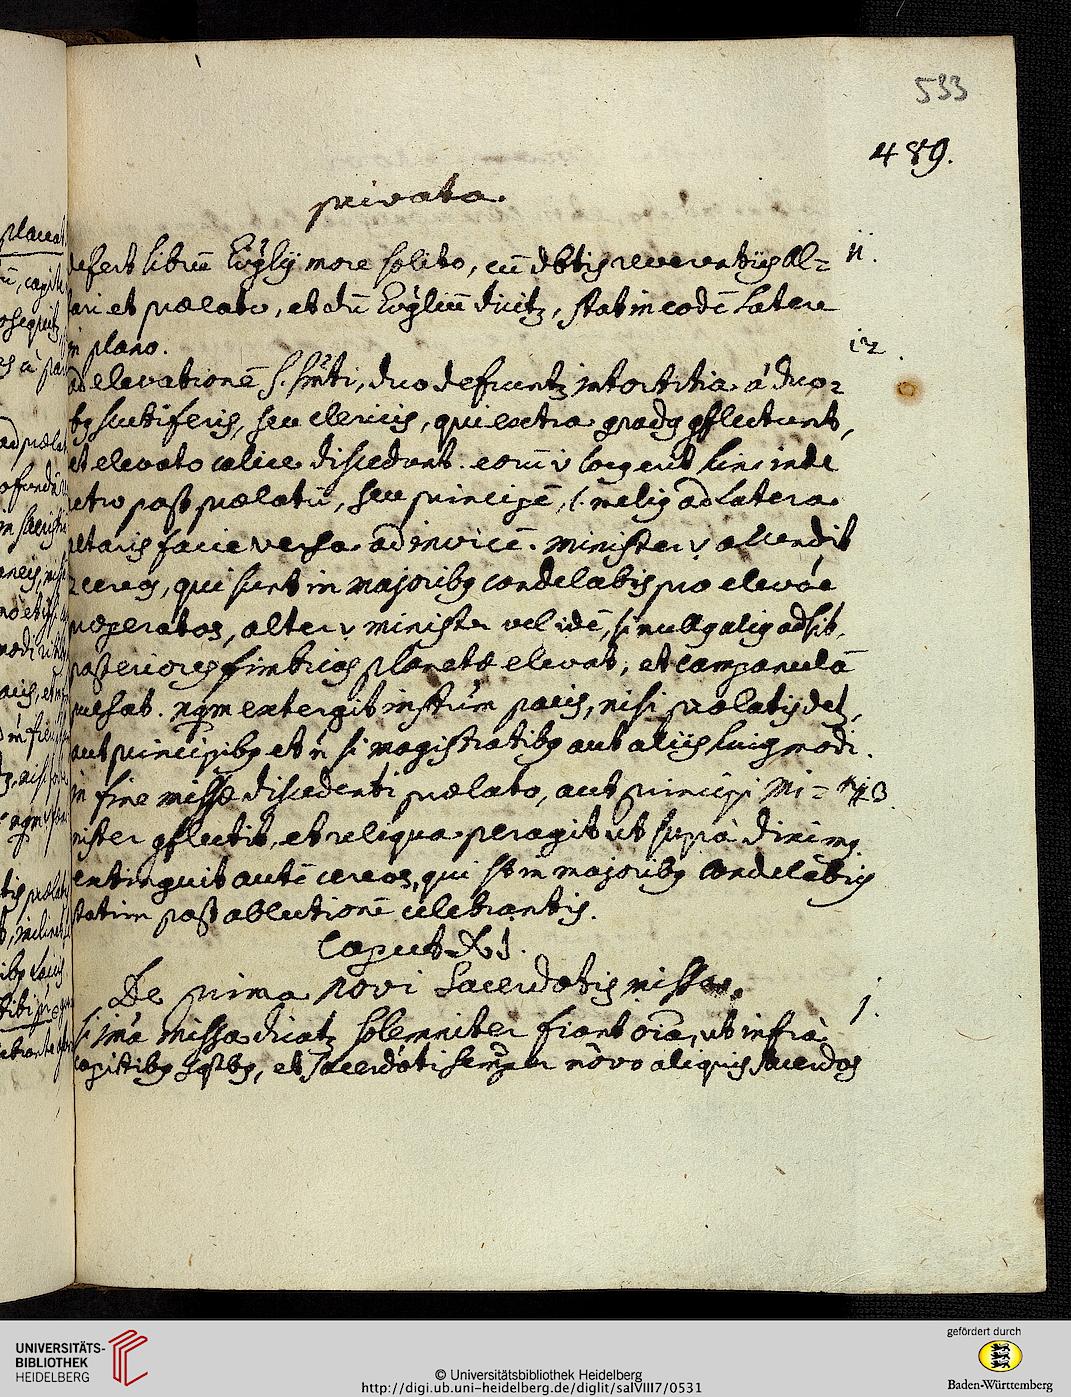 533
489.
privata.
defert librũ Evglij more solito, cũ dbtis reverẽtiis Al= ii.
tari et prælato, et dũ Evgliũ dicitz, stat in eodẽ latere
in plano. i2.
ad elevationẽ S. Smti, duo deferuntz intortitia à duo=
bq scutiferis, seu clericis, qui extra gradq gflectunt,
et elevato calice discedunt.
retro post prælatũ, seu principẽ, melig ad latera
altaris facie versa ad invicẽ. minister v accendit
2 cereos, qui sunt in majoribq candelabis pro
alter v minister vel idẽ, si nullq aliq adsit,
posteriores fimbrias planetæ elevat, et campanulã
pulsat. extergit instrũm pacis, nisi prælatis det,
aut principibq et ñ si magistratibq aut aliis huigmodi.
in fine missæ discedenti prælato, aut principi Mi= i3.
nister gflectit, et reliqua peragit ut suprà diximq.
extinguit autẽ cereos, qui st in majoribq Candelabris
statim post ablutionẽ celebrantis.
Caput XI.
De prima novi Sacerdotis missa.
si ima missa dicatz solemniter fiant oĩa, ut infrà 1.
capitibq et Sacerdoti semper novo aliquis Sacerdos
UNIVERSITÄTS-
BIBLIOTHEK
HEIDELBERG
© Universitätsbibliothek Heidelberg
http://digi.ub.uni-heidelberg.de/diglit/salVIII7/0531
gefördert durch
Baden-Württemberg